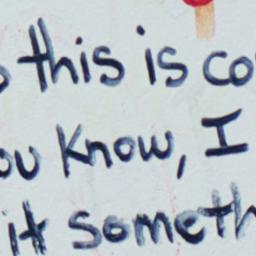 this is co
ou know, I
it someth